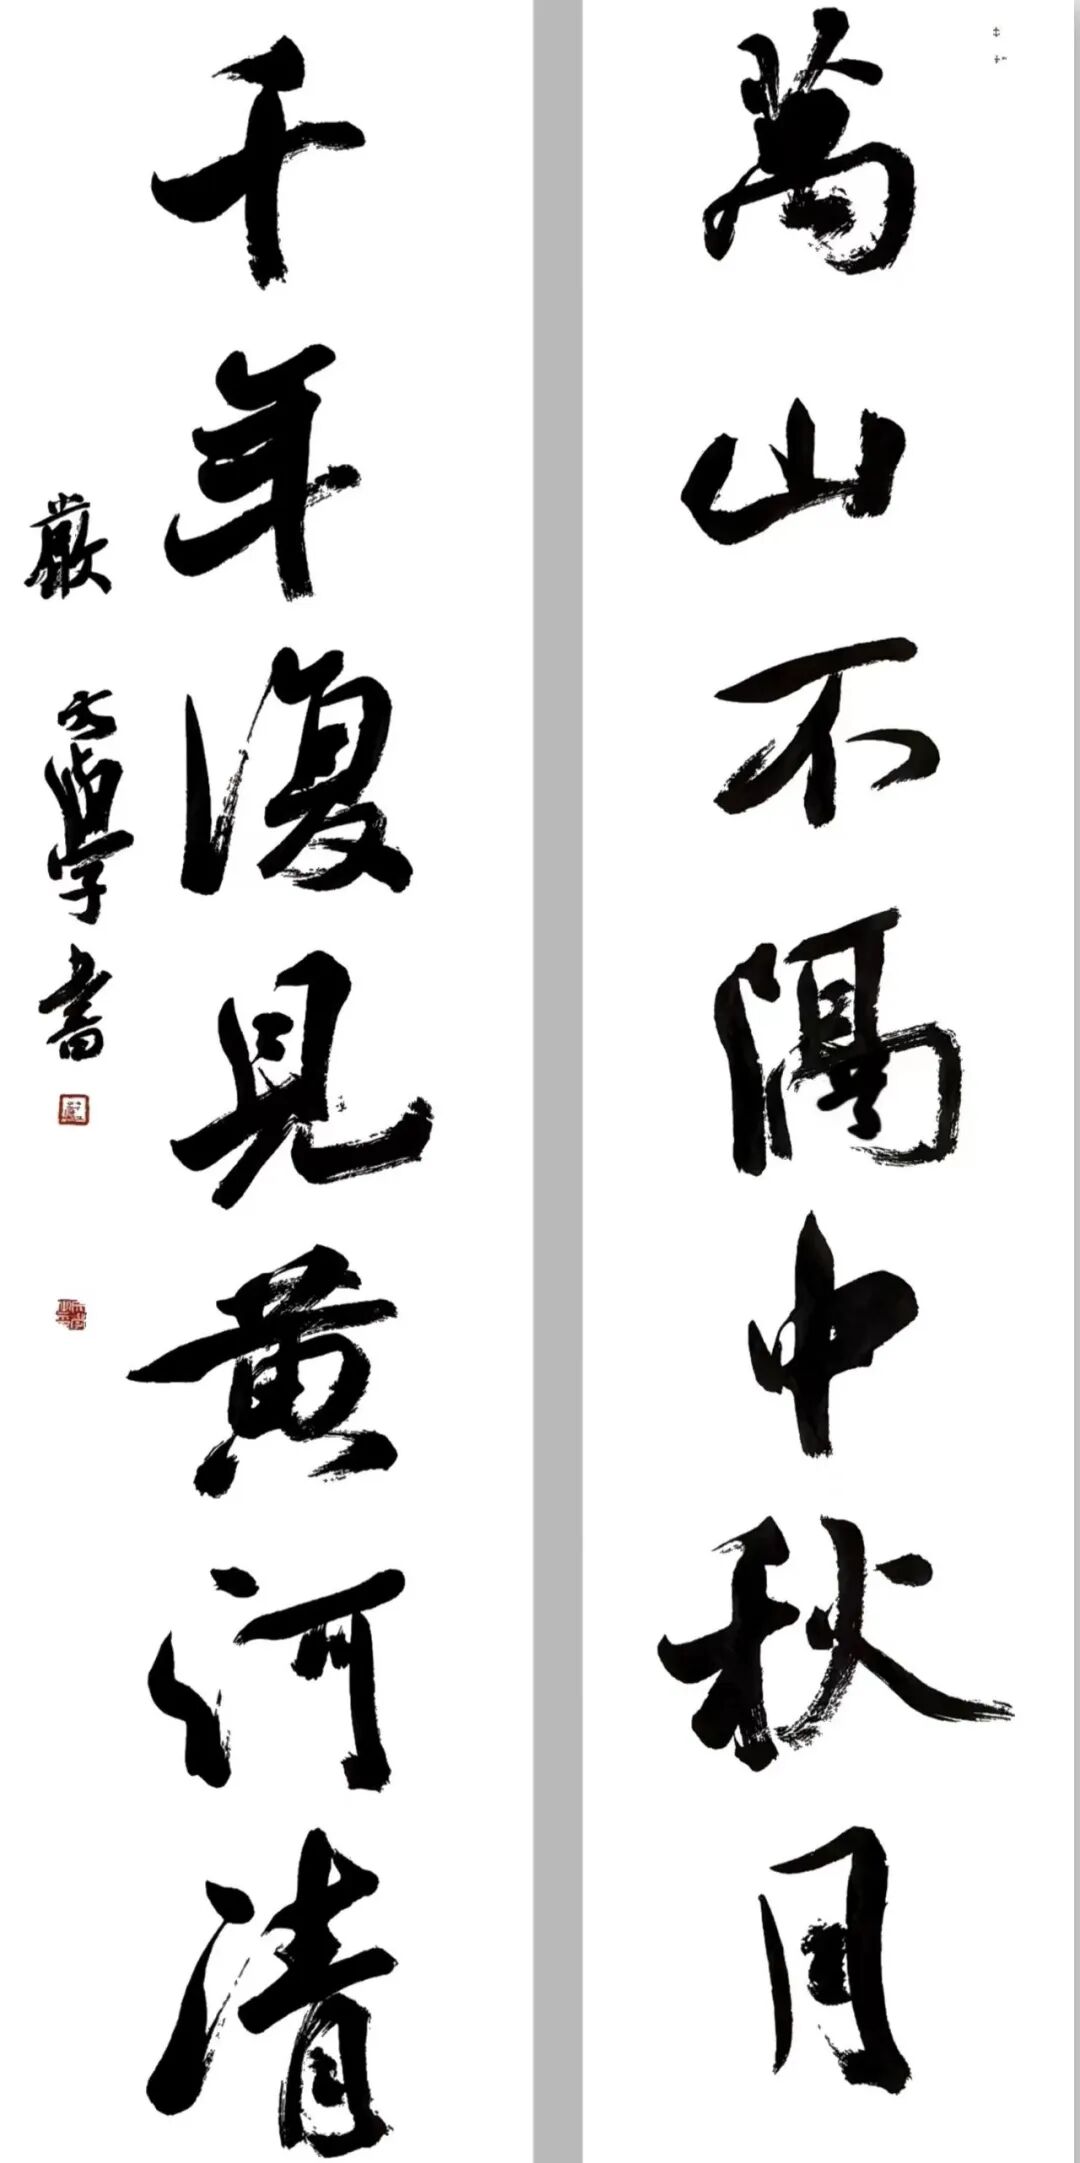 萬山不隔中秋月
千年復見黃河清
嚴六皆學書